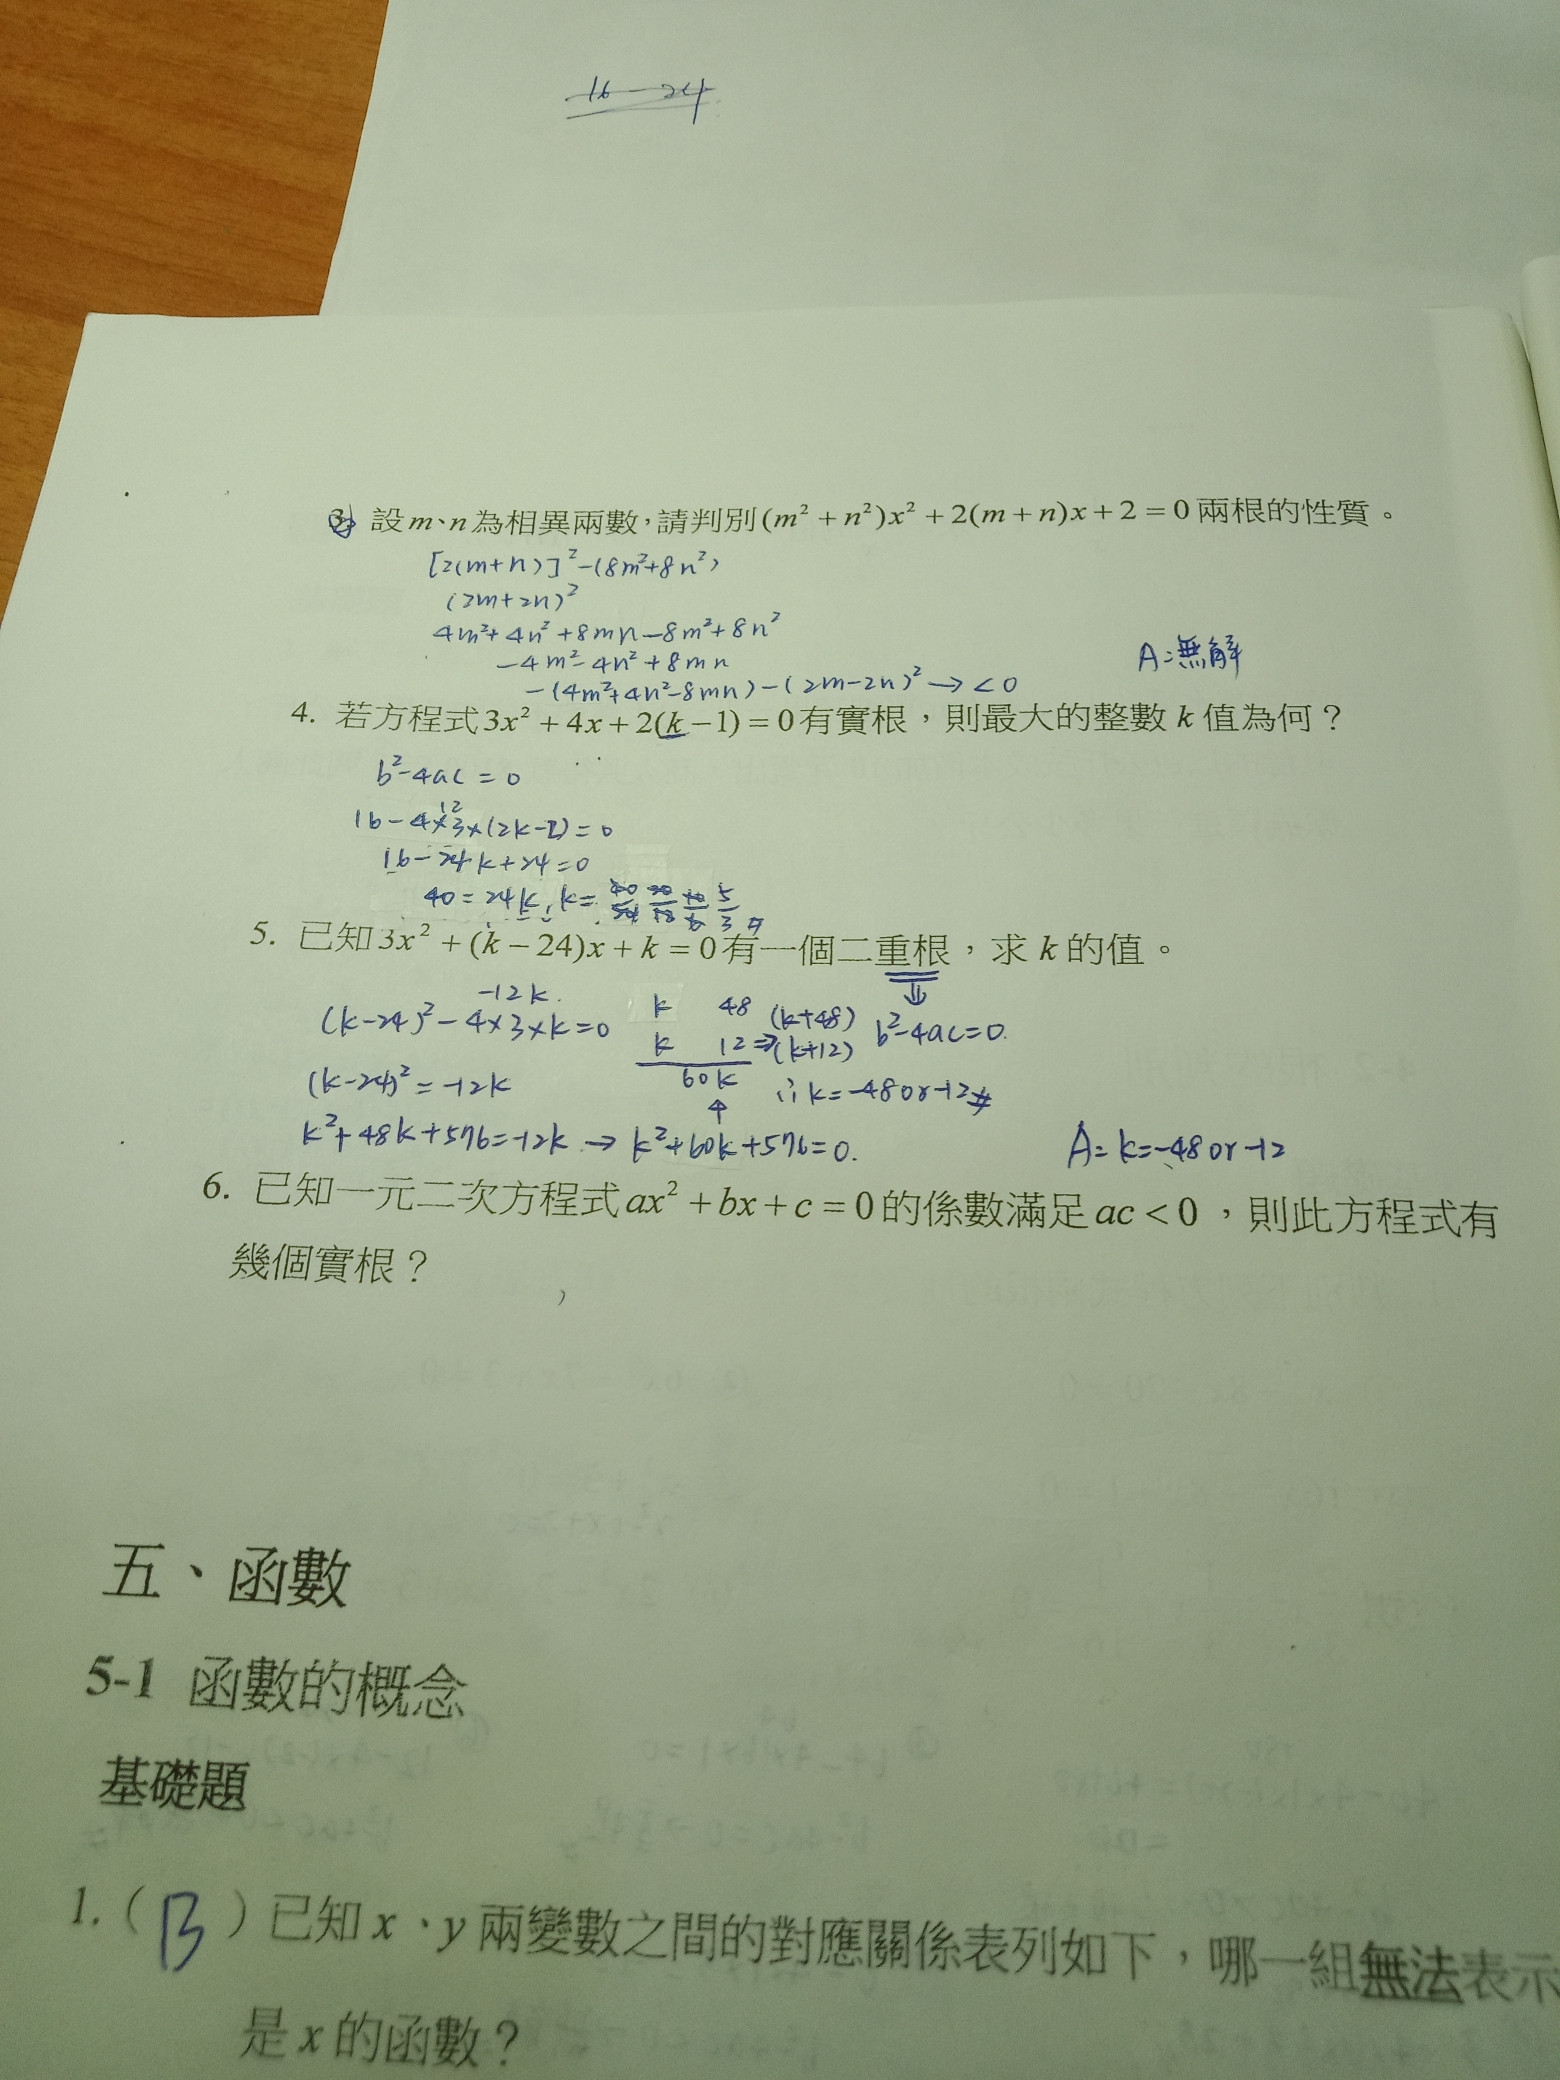 16-24
3. 設m、n為相異兩數，請判別(m²+n²)x²+2(m+n)x+2=0兩根的性質。
[2(m+n)]²-(8m²+8n²)
(2m+2n)²
4m²+4n²+8mn-8m²+8n²
-4m²-4n²+8mn
-(4m²+4n²-8mn)-(2m-2n)²→<0
A:無解
4. 若方程式3x²+4x+2(k-1)=0有實根，則最大的整數k值為何？
b²-4ac=0
12
16-4×3×(2k-2)=0
16-24k+24=0
40=24k, k= 5/3 #
5. 已知3x²+(k-24)x+k=0有一個二重根，求k的值。
-12k
(k-24)²-4×3×k=0
k 48 (k+48)
k 12⇒(k+12)
60k
⇓
b²-4ac=0.
(k-24)²=-12k
∴k=-48or-12#
k²+48k+576=-12k→k²+60k+576=0.
A=k=-48or-12
6. 已知一元二次方程式ax²+bx+c=0的係數滿足ac<0，則此方程式有
幾個實根？
五、函數
5-1 函數的概念
基礎題
1.(B)已知x、y兩變數之間的對應關係表列如下，哪一組無法表示
是x的函數？